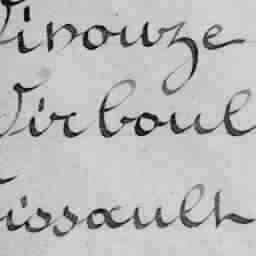 Vinouze
Virboul
Vissault